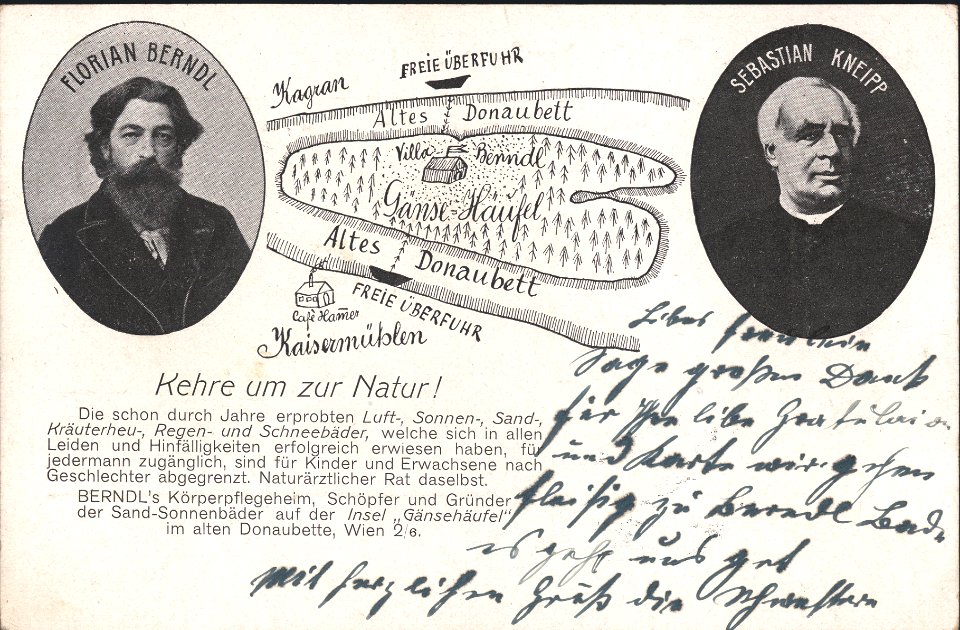 FLORIAN BERNDL
SEBASTIAN KNEIPP
FREIE ÜBERFUHR
Kagran
Altes Donaubett
Villa Berndl
Gänse-Häufel
Altes Donaubett
FREIE ÜBERFUHR
Café Ham̅er
Kaisermühlen
Kehre um zur Natur!
Die schon durch Jahre erprobten Luft-, Sonnen-, Sand-,
Kräuterheu-, Regen- und Schneebäder, welche sich in allen
Leiden und Hinfälligkeiten erfolgreich erwiesen haben, für
jedermann zugänglich, sind für Kinder und Erwachsene nach
Geschlechter abgegrenzt. Naturärztlicher Rat daselbst.
BERNDL's Körperpflegeheim, Schöpfer und Gründer
der Sand-Sonnenbäder auf der Insel „Gänsehäufel"
im alten Donaubette, Wien 2/6.
Libes Freulein
Sage großen Dank
für Ihre libe Gratulaion
und Karte wir gehen
fleisig zu Berndl Bad
es geht uns gut
Mit herzlichen Gruß die Schwestern